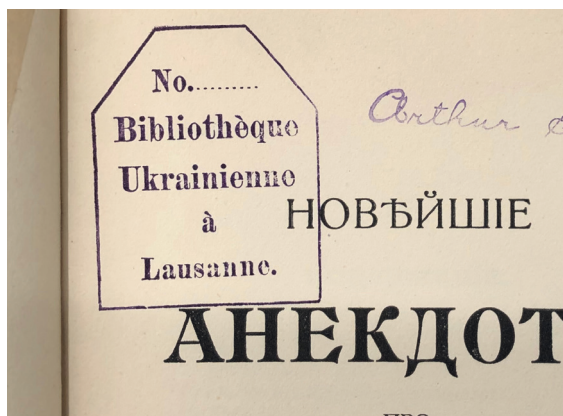 No..........
Bibliothèque
Ukrainienne
à
Lausanne.
Arthur
НОВѢЙШІЕ
АНЕКДОТ
ПРО